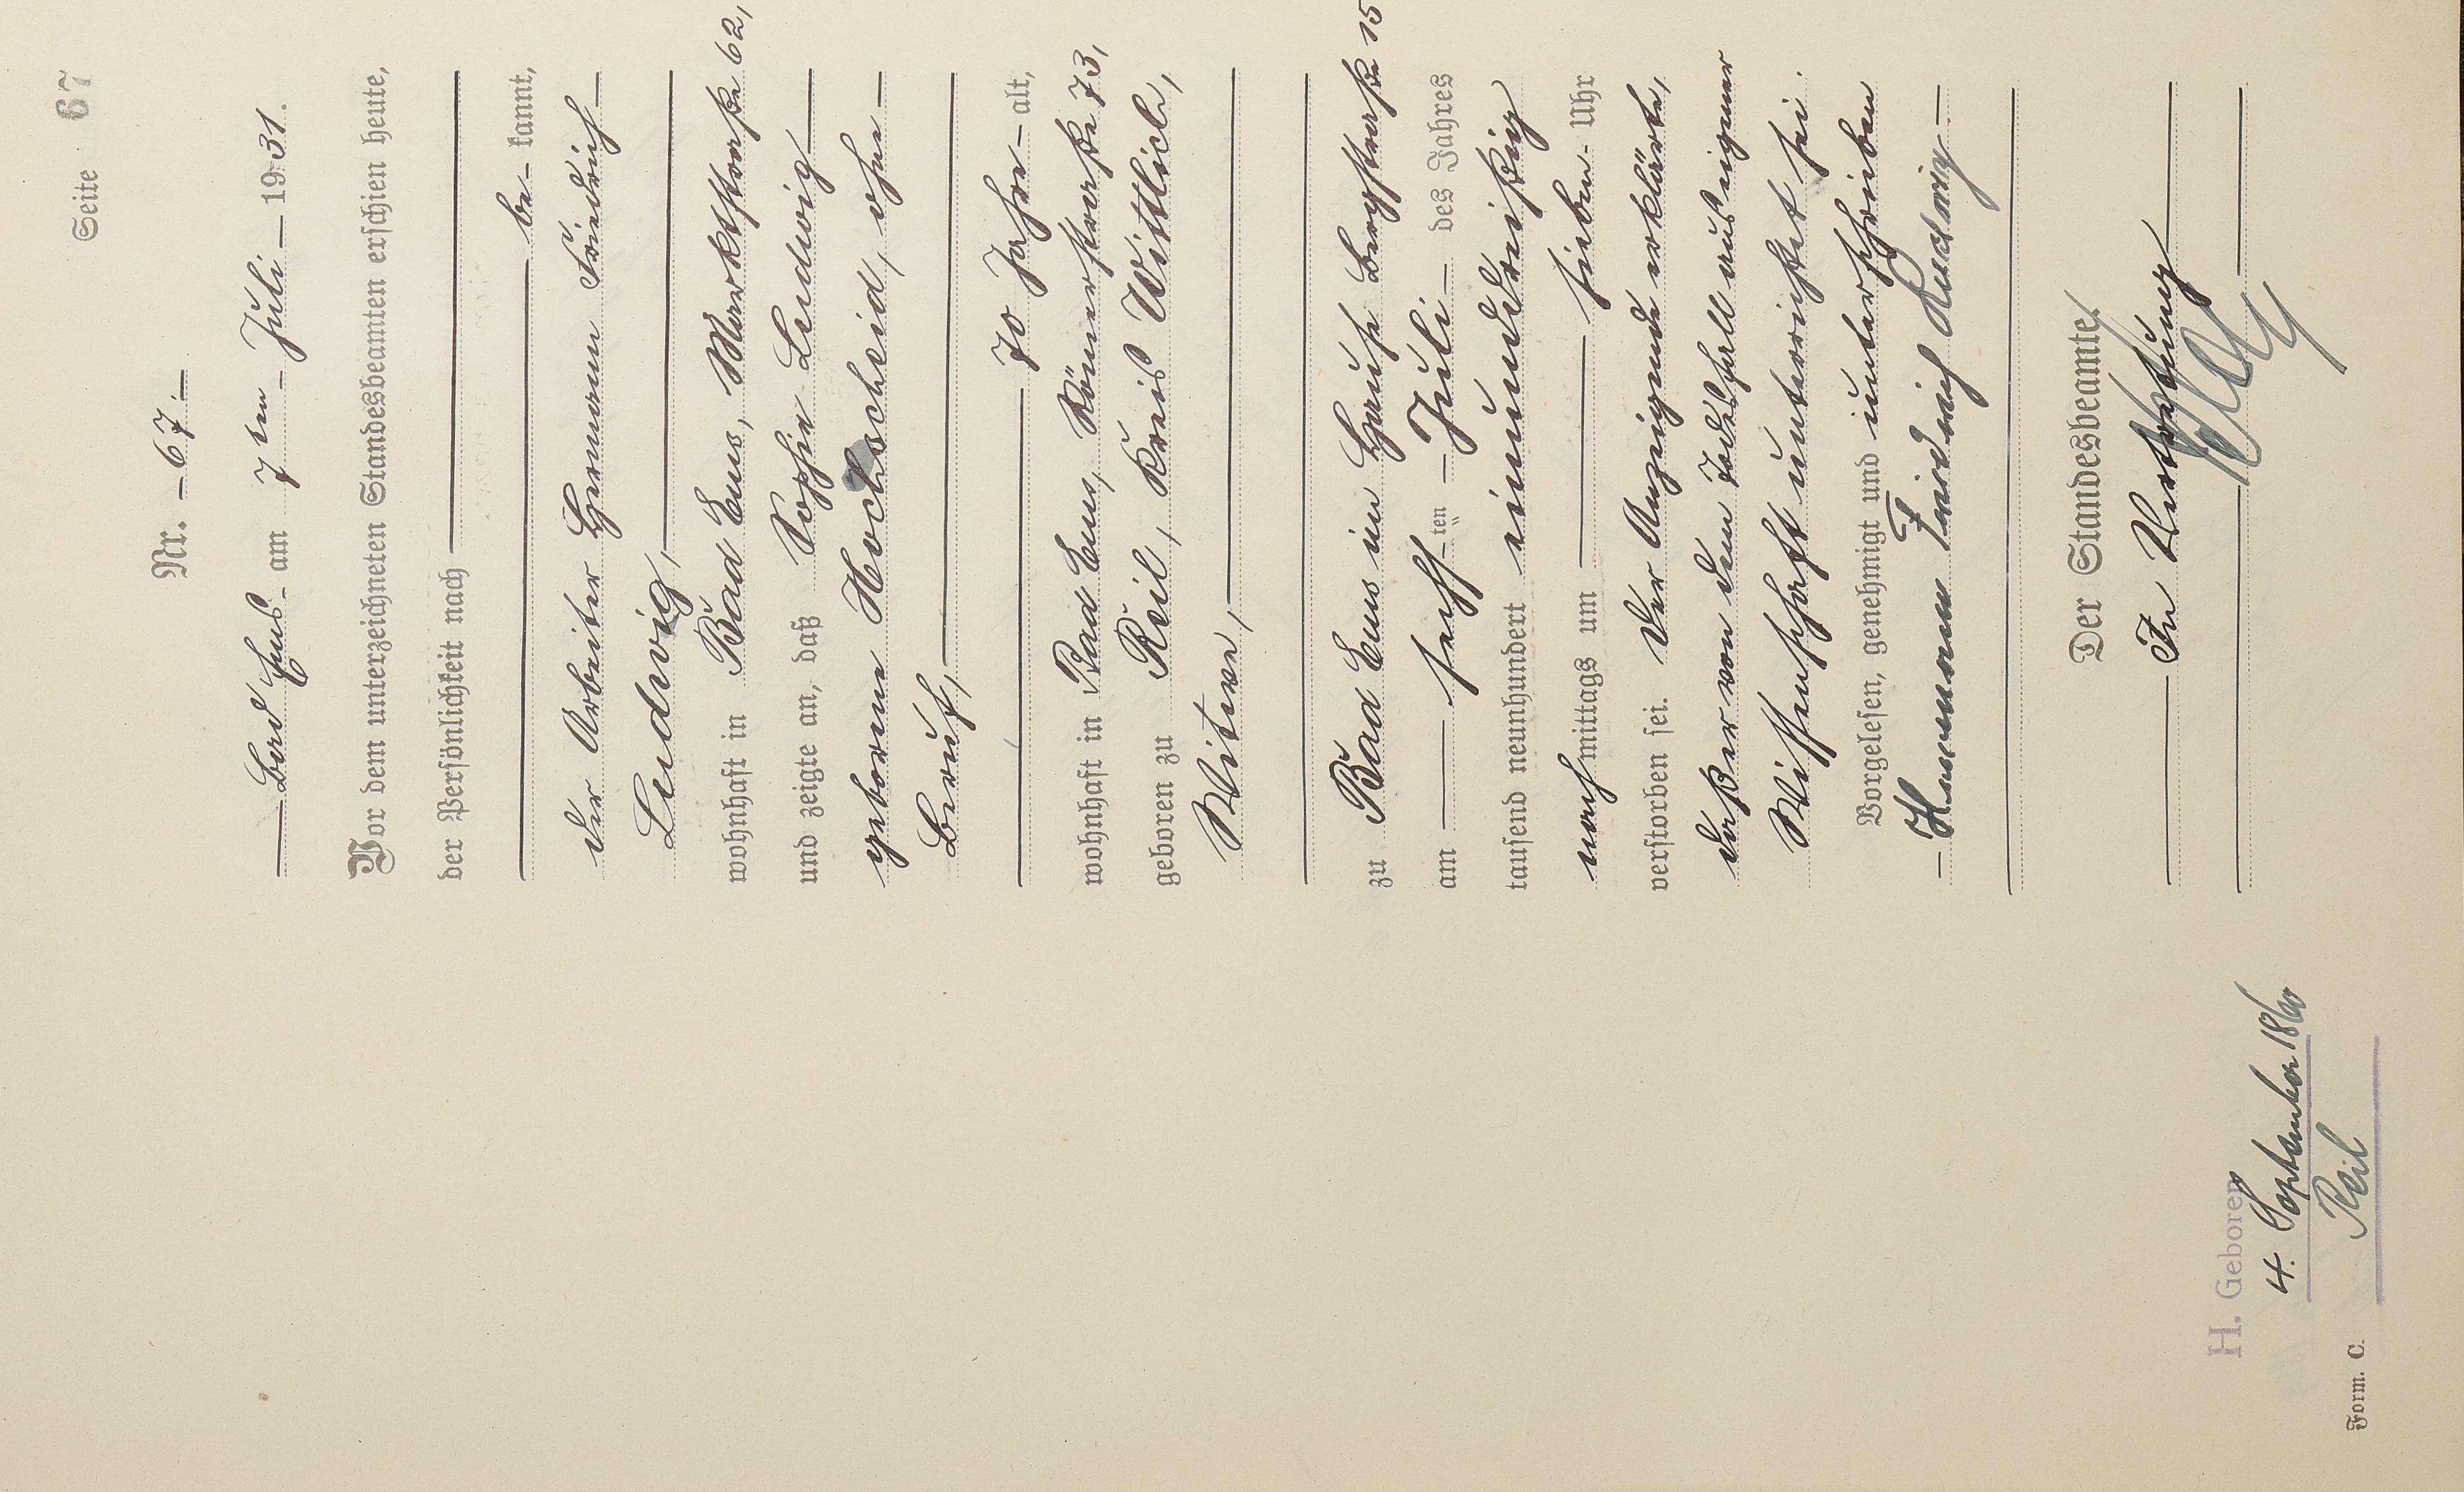 Seite 67
Nr. - 67. -
Bad Ems - am 7ten - Juli - 1931.
Vor dem unterzeichneten Standesbeamten erschien heute,
der Persönlichkeit nach
be - kannt,
der Arbeiter Hermann Friedrich -
Ludwig,
wohnhaft in Bad Ems, Marktstraße 62,
und zeigte an, daß Sophie Ludwig -
geborene Hochscheid, ohne -
Beruf,
70 Jahre - alt,
wohnhaft in Bad Ems, Römerstraße 73,
geboren zu Reil, Kreis Wittlich,
Witwe,
zu Bad Ems im Hause Bergstraße 15
am sechsten - Juli - des Jahres
tausend neunhundert einunddreißig
nachmittags um sieben - Uhr
verstorben sei. Der Anzeigende erklärte,
daß er von dem Todesfall aus eigener
Wissenschaft unterrichtet sei.
Vorgelesen, genehmigt und unterschrieben
- Hermann Friedrich Ludwig -
Der Standesbeamte.
In Vertretung
H. Geboren
4. September 1860
Reil
Form. C.